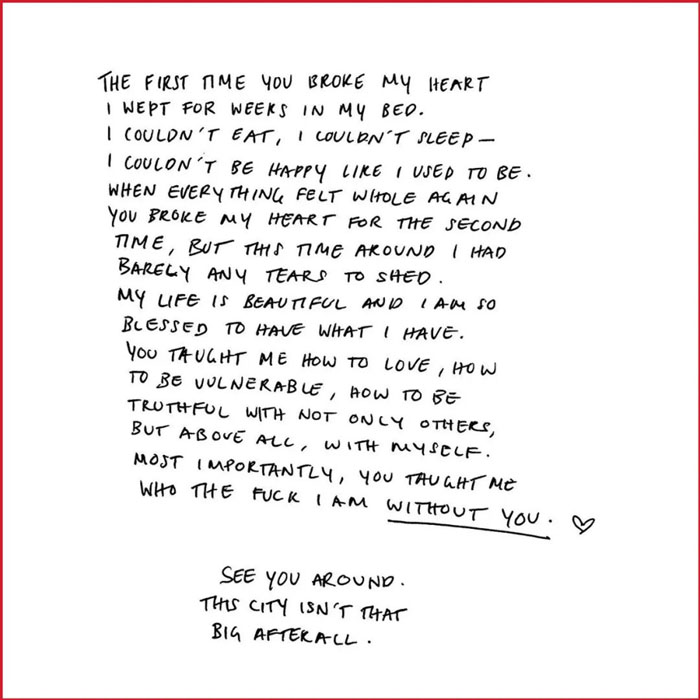 THE FIRST TIME YOU BROKE MY HEART
I WEPT FOR WEEKS IN MY BED.
I COULDN'T EAT, I COULDN'T SLEEP—
I COULDN'T BE HAPPY LIKE I USED TO BE.
WHEN EVERYTHING FELT WHOLE AGAIN
YOU BROKE MY HEART FOR THE SECOND
TIME, BUT THIS TIME AROUND I HAD
BARELY ANY TEARS TO SHED.
MY LIFE IS BEAUTIFUL AND I AM SO
BLESSED TO HAVE WHAT I HAVE.
YOU TAUGHT ME HOW TO LOVE, HOW
TO BE VULNERABLE, HOW TO BE
TRUTHFUL WITH NOT ONLY OTHERS,
BUT ABOVE ALL, WITH MYSELF.
MOST IMPORTANTLY, YOU TAUGHT ME
WHO THE FUCK I AM WITHOUT YOU. ♡
SEE YOU AROUND.
THIS CITY ISN'T THAT
BIG AFTERALL.